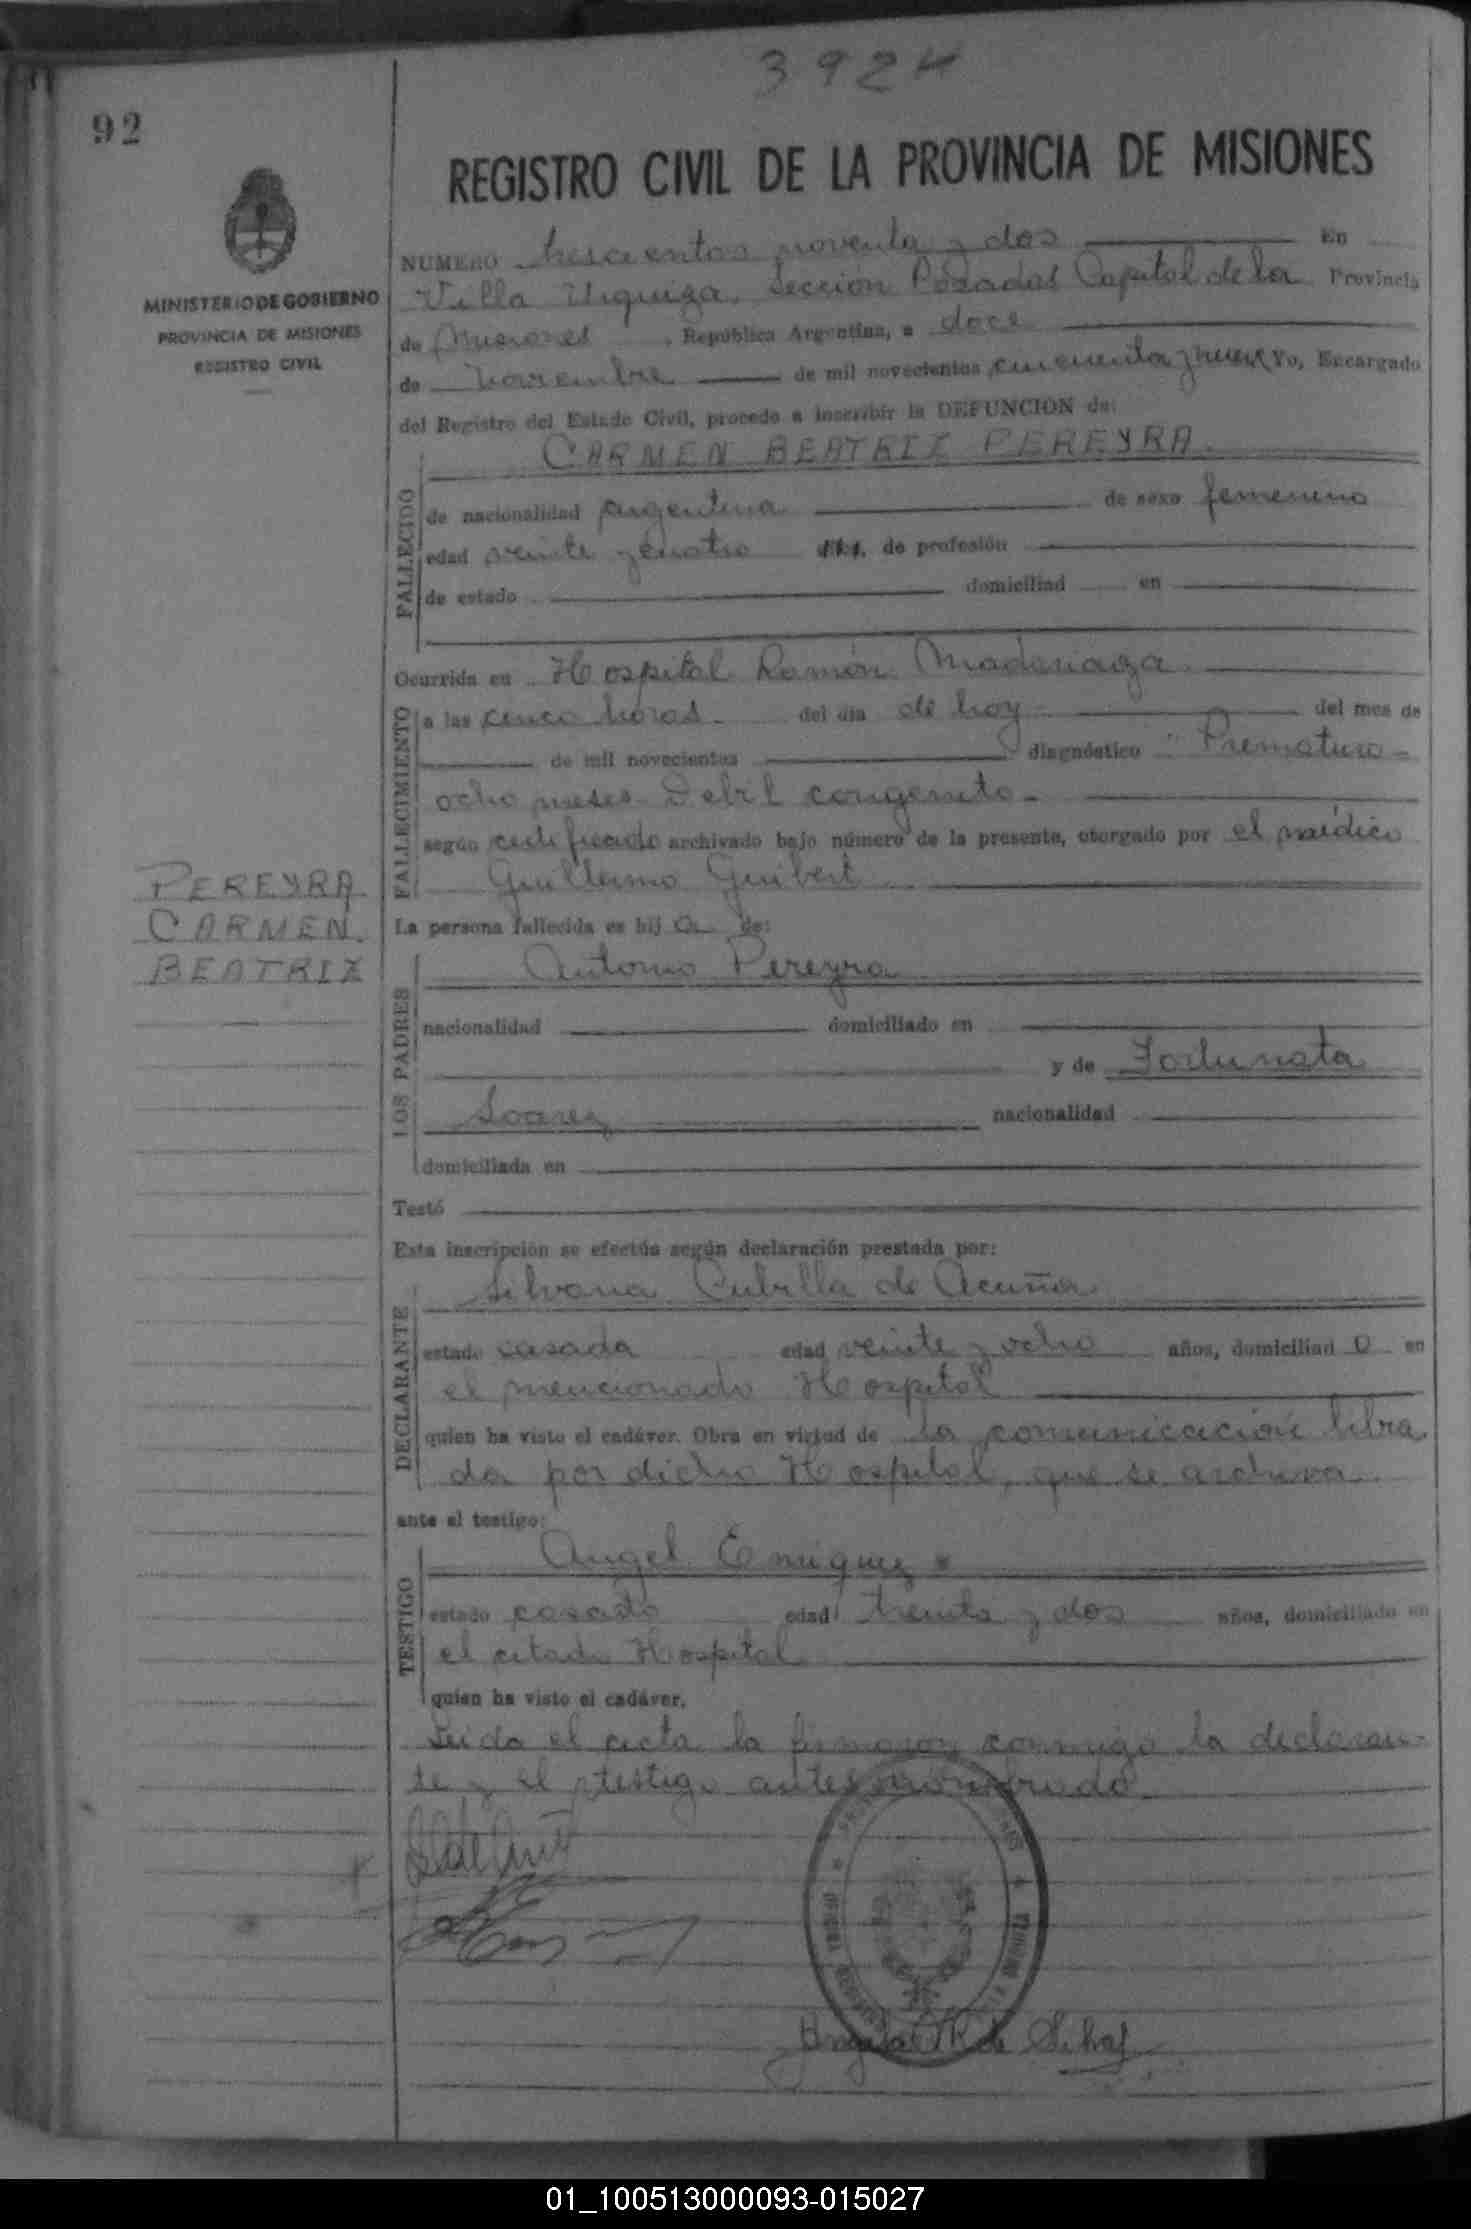 392 H
92
REGISTRO CIVIL DE LA PROVINCIA DE MISIONES
MINISTERIO DE GOBIERNO
PROVINCIA DE MISIONES
REGISTRO CIVIL
NUMERO trescientos noventa y dos En
Villa Urquiza, Sección Posadas Capital de la Provincia
de Misiones, República Argentina, a doce
de noviembre de mil novecientos cincuenta y nueve Yo, Encargado
del Registro del Estado Civil, procedo a inscribir la DEFUNCION de:
CARMEN BEATRIZ PEREYRA.
FALLECIDO
de nacionalidad argentina de sexo femenino
edad veinte y cuatro de profesión
de estado domiciliad en
Ocurrida en Hospital Ramón Madariaga
FALLECIMIENTO
a las cinco horas. del dia de hoy del mes de
de mil novecientos diagnóstico "Prematuro-
ocho meses. Debil congenito-
según certificado archivado bajo número de la presente, otorgado por el médico
Guillermo Guibert
PEREYRA
CARMEN
BEATRIZ
La persona fallecida es hij a de:
LOS PADRES
Antonio Pereyra
nacionalidad domiciliado en
y de Fortunata
Soarez nacionalidad
domiciliada en
Testó
Esta inscripción se efectúa según declaración prestada por:
DECLARANTE
Silvana Cubilla de Acuña
estado casada edad veinte y ocho años, domiciliad o en
el mencionado Hospital
quien ha visto el cadáver. Obra en virtud de la comunicación libra
da por dicho Hospital, que se archiva
ante el testigo:
TESTIGO
Angel Enriquez
estado casado edad treinta y dos años, domiciliado en
el citado Hospital
quien ha visto el cadáver.
Leida el acta la firmaron conmigo la declaran-
te y el testigo antes nombrado.
01_100513000093-015027